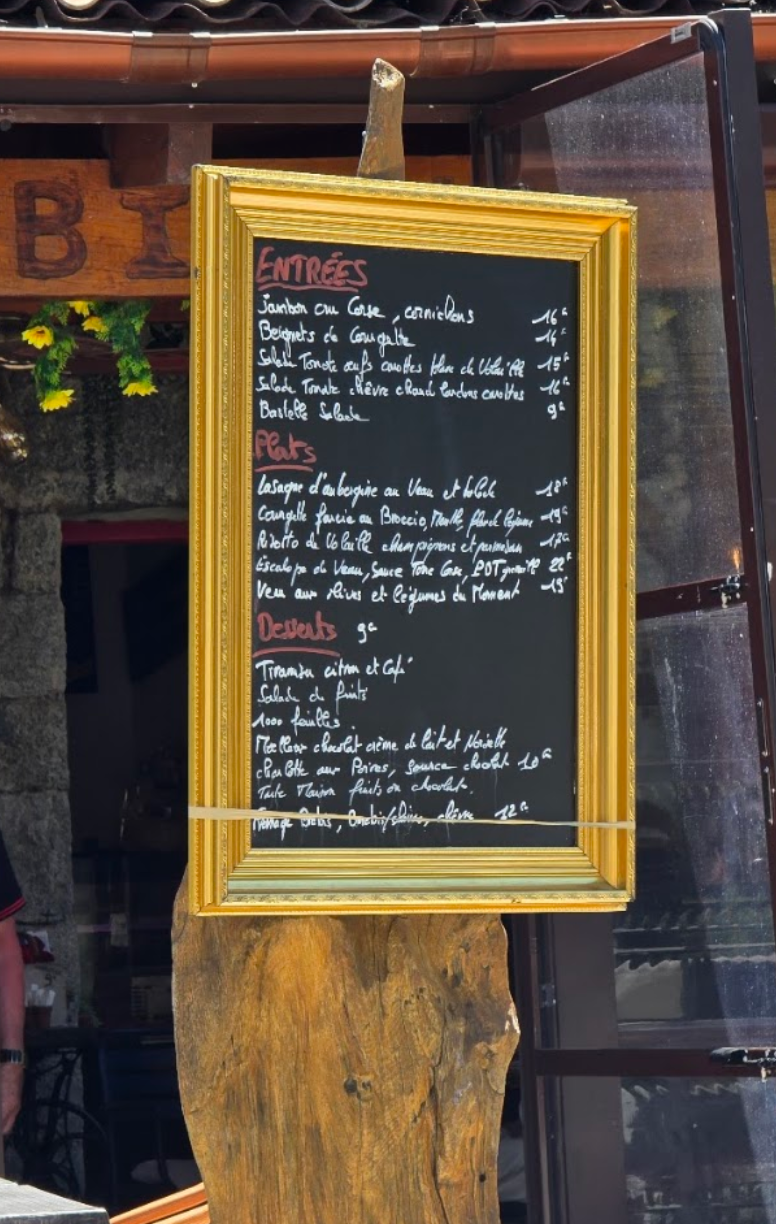 BI
ENTRÉES
Jambon cru Corse, cornichons 16€
Beignets de Courgette 14€
Salade Tomate œufs carottes blanc de Volaille 15€
Salade Tomate chèvre chaud lardons carottes 16€
Bastelle Salade 9€
Plats
Lasagne d'aubergine au Veau et salade 18€
Courgette farcie au Broccio, Menthe, légumes 19€
Risotto de Volaille champignons et parmesan 17€
Escalope de Veau, Sauce Tome Corse, PDT 22€
Veau aux olives et légumes du Moment 15€
Desserts 9€
Tiramisu citron et Café
Salade de fruits
1000 feuilles
Moelleux chocolat crème de lait et Noisette
charlotte aux Poires, source chocolat 10€
Tarte Maison fruits ou chocolat.
chèvre 12€